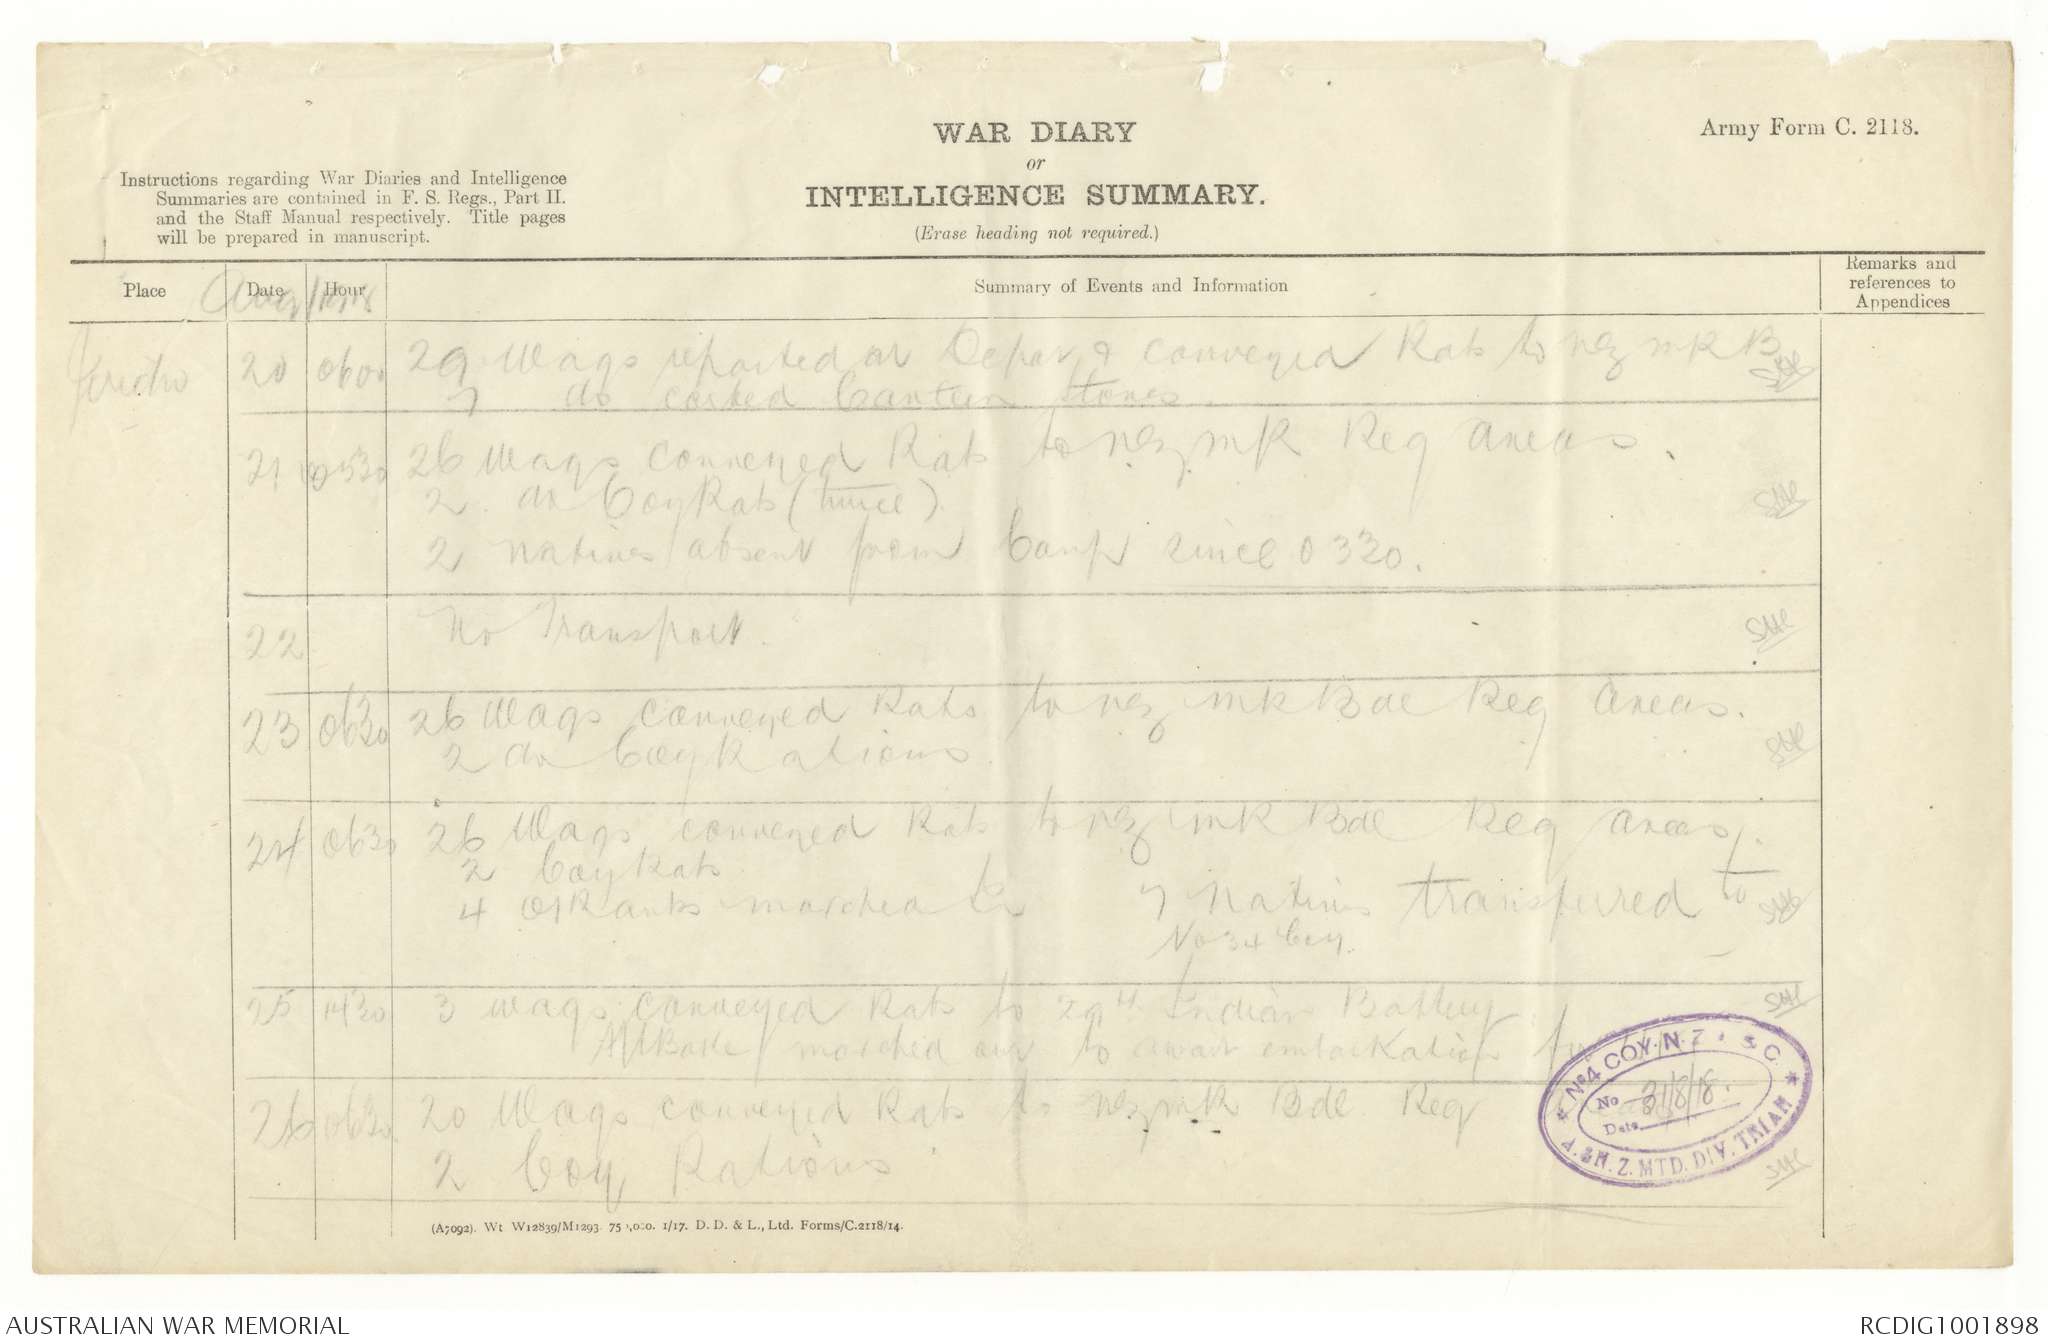 WAR DIARY
or
INTELLIGENCE SUMMARY.
(Erase heading not required.)
Army Form C. 2118.
Instructions regarding War Diaries and Intelligence
Summaries are contained in F. S. Regs., Part II.
and the Staff Manual respectively. Title pages
will be prepared in manuscript.
Place
Date
Hour
Summary of Events and Information
Remarks and
references to
Appendices
Aug/1918
Jericho 20 0600 29 Wags reported at Depot & conveyed Rats to NZ MR B
7 do carted Canteen Stores.
21 0530 26 Wags conveyed Rats to NZ MR Reg areas.
2 do Coy Rats (twice).
2 natives absent from Camp since 0330.
22 No Transport.
23 0630 26 Wags conveyed Rats to NZ MR Bde Reg Areas.
2 do Coy Rations
24 0630 26 Wags conveyed Rats to NZ MR Bde Reg areas.
2 Coy Rats
4 O/Ranks marched 7 natives transferred to
No 34 Coy.
25 1430 3 wags conveyed Rats to 29th Indian Battery
marched out to await embarkation for
26 0630 20 Wags conveyed Rats to NZ MR Bde Reg
2 Coy Rations
No 4 COY. N.Z. S.C.
No
31/8/18.
Date
A. & N. Z. MTD. DIV. TRIAN
(A7092). Wt W12839/M1293. 75 ,0:0. 1/17. D. D. & L., Ltd. Forms/C.2118/14.
AUSTRALIAN WAR MEMORIAL
RCDIG1001898